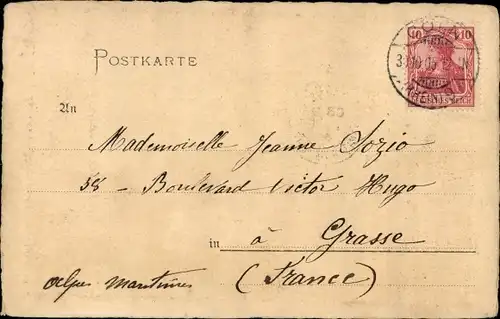 10 10
POSTKARTE
An
Mademoiselle Jeanne Sozio
58 - Boulevard Victor Hugo
in à Grasse
Alpes Maritimes (France)